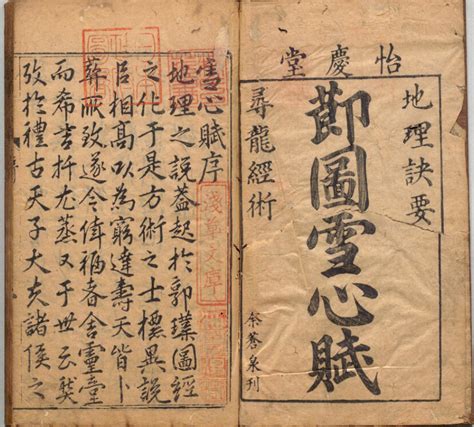 怡慶堂
地理訣要
莭圖雪心賦
尋龍經術
余蒼泉刊
雪心賦序
地理之說蓋起於郭璞圖經
之化于是方術之士標異說
相髙以為窮達壽夭皆卜
葬所致遂令福舍靈臺
而希吉又于世云
攷於禮古天子大夫諸侯之
淺草文庫